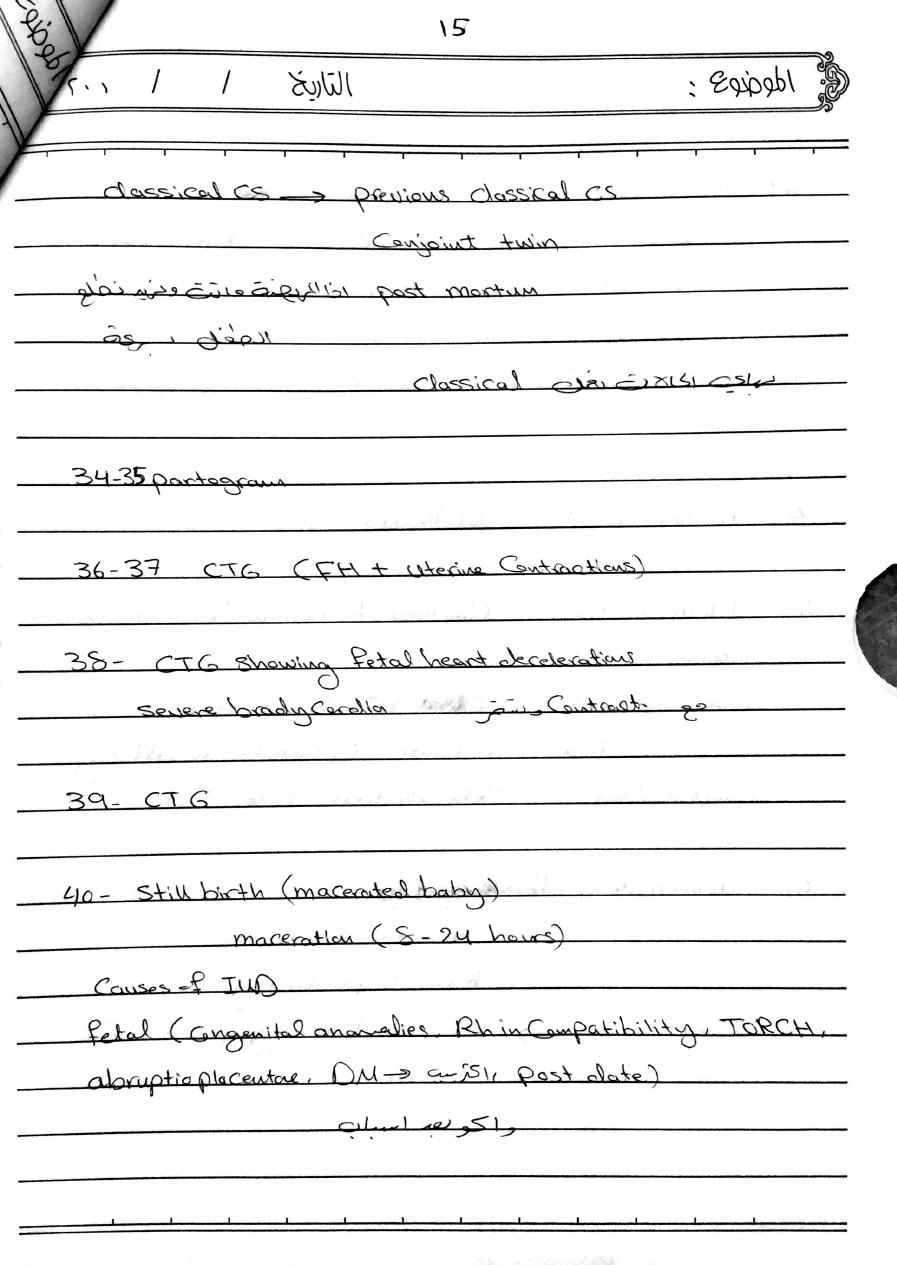 15
الموضوع : التاريخ / / ٢٠٠١
الموضوع
classical CS → previous classical CS
Conjoint twin
post mortum اذا المريضة ماتت ونريد نطلع
الطفل بسرعة
بهاي الحالات نعمل classical
34-35 partogram
36-37 CTG (FH + Uterine Contractions)
38- CTG showing fetal heart decelerations
severe bradycardia مع Contract.
39- CTG
40- Still birth (macerated baby)
maceration (8-24 hours)
Causes of IUD
fetal (Congenital anomalies, Rh incompatibility, TORCH,
abruptio placentae, DM → post date)
واكو بعد اسباب